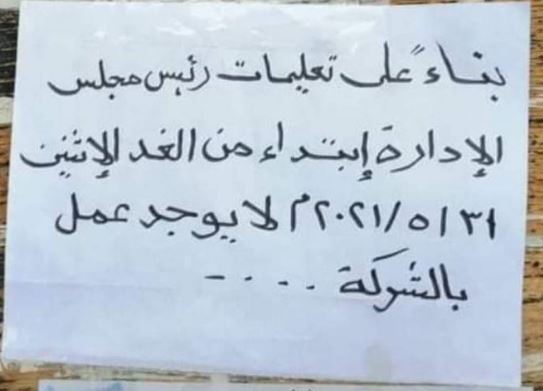 بناءً على تعليمات رئيس مجلس
الإدارة إبتداء من الغد الإثنين
٣١/٥/٢٠٢١م لا يوجد عمل
بالشركة . . . . -